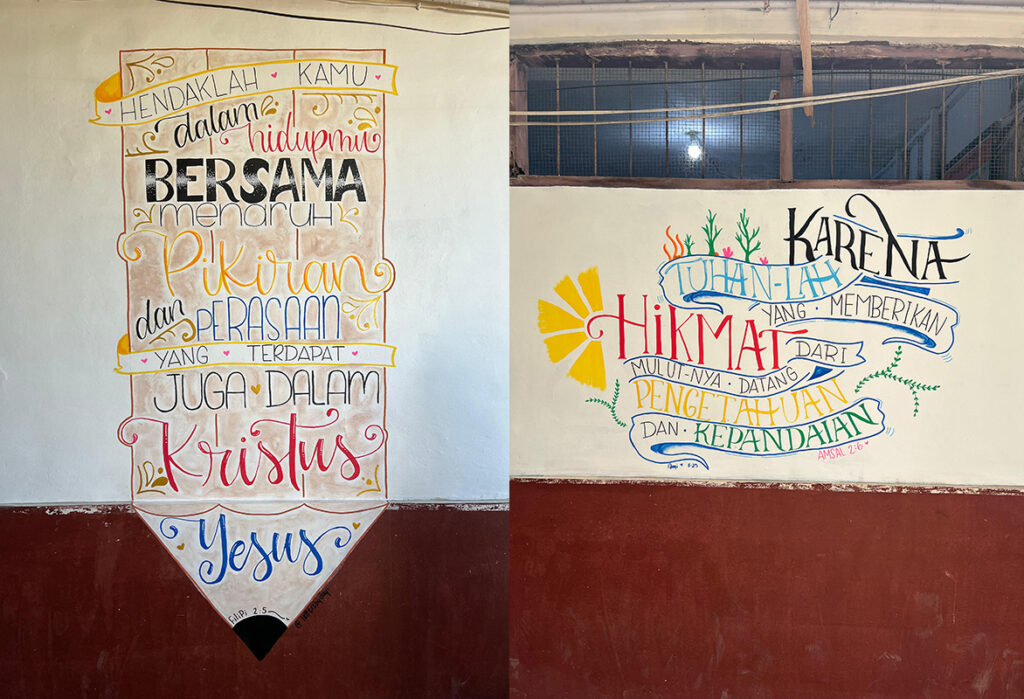 HENDAKLAH KAMU
dalam
hidupmu
BERSAMA
menaruh
Pikiran
dan PERASAAN
YANG TERDAPAT
JUGA DALAM
Kristus
Yesus
FiliPi 2:5
KARENA
TUHAN-LAH
YANG MEMBERIKAN
HiKMAT
DARI
MULUT-NYA DATANG
PENGETAHUAN
DAN KEPANDAIAN
AMSAL 2:6